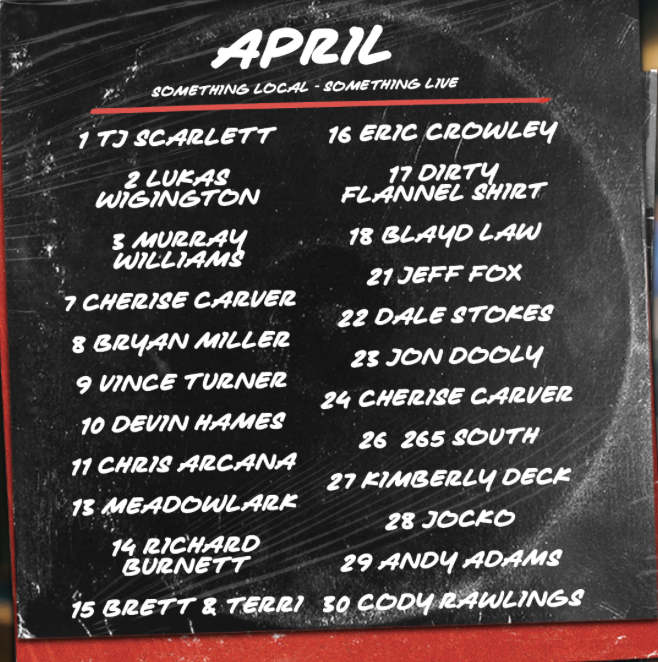 APRIL
SOMETHING LOCAL - SOMETHING LIVE
1 TJ SCARLETT
2 LUKAS
WIGINGTON
3 MURRAY
WILLIAMS
7 CHERISE CARVER
8 BRYAN MILLER
9 VINCE TURNER
10 DEVIN HAMES
11 CHRIS ARCANA
13 MEADOWLARK
14 RICHARD
BURNETT
15 BRETT & TERRI
16 ERIC CROWLEY
17 DIRTY
FLANNEL SHIRT
18 BLAYD LAW
21 JEFF FOX
22 DALE STOKES
23 JON DOOLY
24 CHERISE CARVER
26 265 SOUTH
27 KIMBERLY DECK
28 JOCKO
29 ANDY ADAMS
30 CODY RAWLINGS